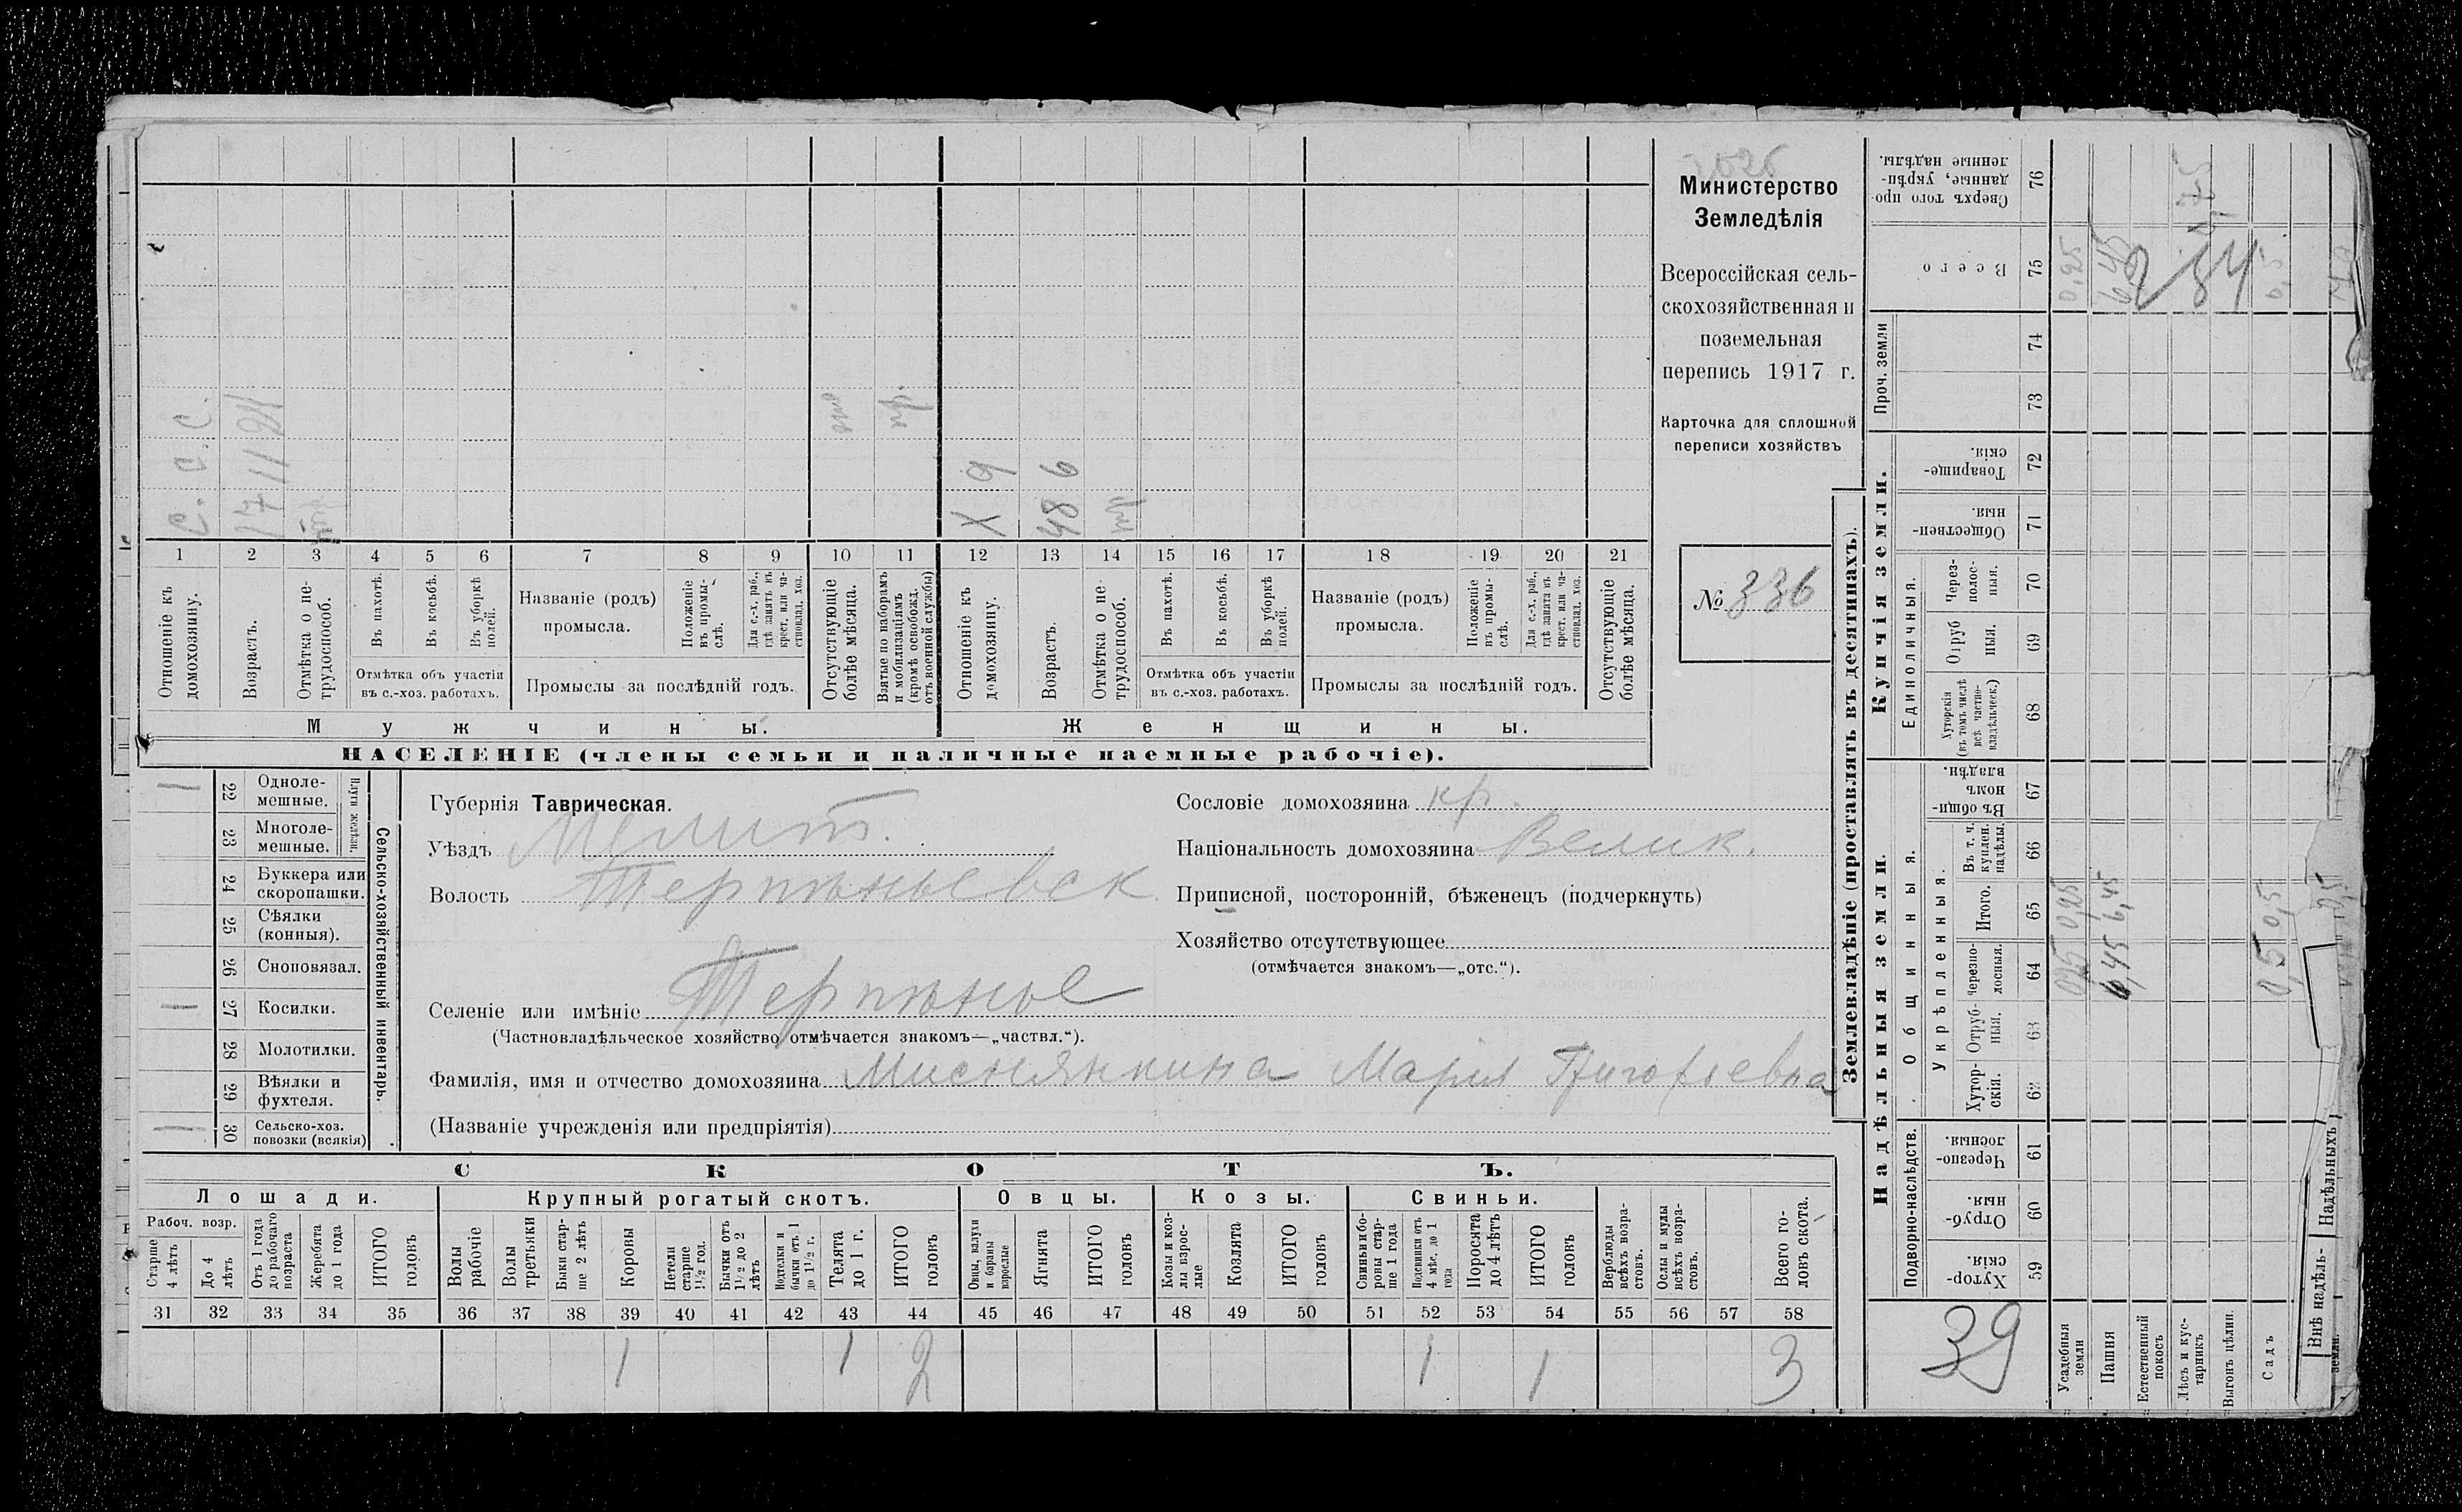 Министерство
Земледѣлія
Всероссійская сель-
скохозяйственная и
поземельная
перепись 1917 г.
Карточка для сплошной
переписи хозяйствъ
№ 336
С. С. С.
17 11 21
Х 9
48 6
1 2 3 4 5 6 7 8 9 10 11 12 13 14 15 16 17 18 19 20 21
Отношеніе къ домохозяину.
Возрастъ.
Отмѣтка о не трудоспособ.
Въ пахотѣ.
Въ косьбѣ.
Въ уборкѣ полей.
Отмѣтка объ участіи
въ с.-хоз. работахъ.
Названіе (родъ)
промысла.
Положеніе въ промы-слѣ.
Для с.-х. раб., гдѣ занятъ въ крест. или ча-стновлад. хоз.
Промыслы за послѣдній годъ.
Отсутствующіе болѣе мѣсяца.
Взятые по наборамъ и мобилизаціямъ (кромѣ освобожд. отъ военной службы)
Отношеніе къ домохозяину.
Возрастъ.
Отмѣтка о не трудоспособ.
Въ пахотѣ.
Въ косьбѣ.
Въ уборкѣ полей.
Отмѣтка объ участіи
въ с.-хоз. работахъ.
Названіе (родъ)
промысла.
Положеніе въ промы-слѣ.
Для с.-х. раб., гдѣ занята въ крест. или ча-стновлад. хоз.
Промыслы за послѣдній годъ.
Отсутствующіе болѣе мѣсяца.
Мужчины.
Женщины.
НАСЕЛЕНІЕ (члены семьи и наличные наемные рабочіе).
Сельско-хозяйственный инвентарь.
Плуги желѣзн.
1 22 Одноле-мешные.
23 Многоле-мешные.
24 Буккера или скоропашки.
25 Сѣялки (конныя).
26 Сноповязал.
1 27 Косилки.
28 Молотилки.
29 Вѣялки и фухтеля.
1 30 Сельско-хоз. повозки (всякія)
Губернія Таврическая.
Уѣздъ Мелит.
Волость Терпѣньевск
Селеніе или имѣніе Терпѣнье
(Частновладѣльческое хозяйство отмѣчается знакомъ—„частвл.“).
Сословіе домохозяина кр.
Національность домохозяина Велик.
Приписной, посторонній, бѣженецъ (подчеркнуть)
Хозяйство отсутствующее
(отмѣчается знакомъ—„отс.“).
Фамилія, имя и отчество домохозяина Миснянкина Марія Григорьевна
(Названіе учрежденія или предпріятія)
СКОТЪ.
Лошади.
Крупный рогатый скотъ.
Овцы.
Козы.
Свиньи.
Рабоч. возр.
Старше 4 лѣтъ
До 4 лѣтъ
Отъ 1 года до рабочаго возраста
Жеребята до 1 года
ИТОГО головъ
Волы рабочіе
Волы третьяки
Быки стар-ше 2 лѣтъ
Коровы
Нетели старше 1½ год.
Бычки отъ 1½ до 2 лѣтъ
Нодтелки и бычки отъ 1 до 1½ г.
Телята до 1 г.
ИТОГО головъ
Овцы, валухи и бараны взрослые
Ягнята
ИТОГО головъ
Козы и коз-лы взрос-лые
Козлята
ИТОГО головъ
Свиньи и бо-ровы стар-ше 1 года
Подсвинки отъ 4 мѣс. до 1 года
Поросята до 4 лѣтъ
ИТОГО головъ
Верблюды всѣхъ возра-стовъ.
Ослы и мулы всѣхъ возра-стовъ.
Всего го-ловъ скота.
31 32 33 34 35 36 37 38 39 40 41 42 43 44 45 46 47 48 49 50 51 52 53 54 55 56 57 58
1 1 2 1 1 3
Землевладѣніе (проставлять въ десятинахъ).
Надѣльныя земли.
Купчія земли.
Проч. земли
Подворно-наслѣдств.
Общинныя.
Укрѣпленныя.
Единоличныя.
59 Хутор-скія.
60 Отруб-ныя.
61 Черезпо-лосныя.
62 Хутор-скія.
63 Отруб-ныя.
64 Черезпо-лосныя.
65 Итого.
66 Въ т. ч. куплен. надѣлы.
67 Въ общин-номъ владѣн.
68 Хуторскія (въ томъ числѣ всѣ частно-владѣльческ.)
69 Отруб ныя.
70 Через-полос-ныя.
71 Обществен-ныя.
72 Товарище-скія.
73
74
75 Всего
76 Сверхъ того про-данные, укрѣп-ленные надѣлы.
39
Усадебныя земли 0,25 0,25 0,25
Пашня 6,45 6,45 6,45
Естественный покосъ
Лѣсъ и кус-тарникъ
Выгонъ цѣлин.
Садъ 0,5 0,5 0,5
284
Внѣ надѣль-
Надѣльныхъ
земли.